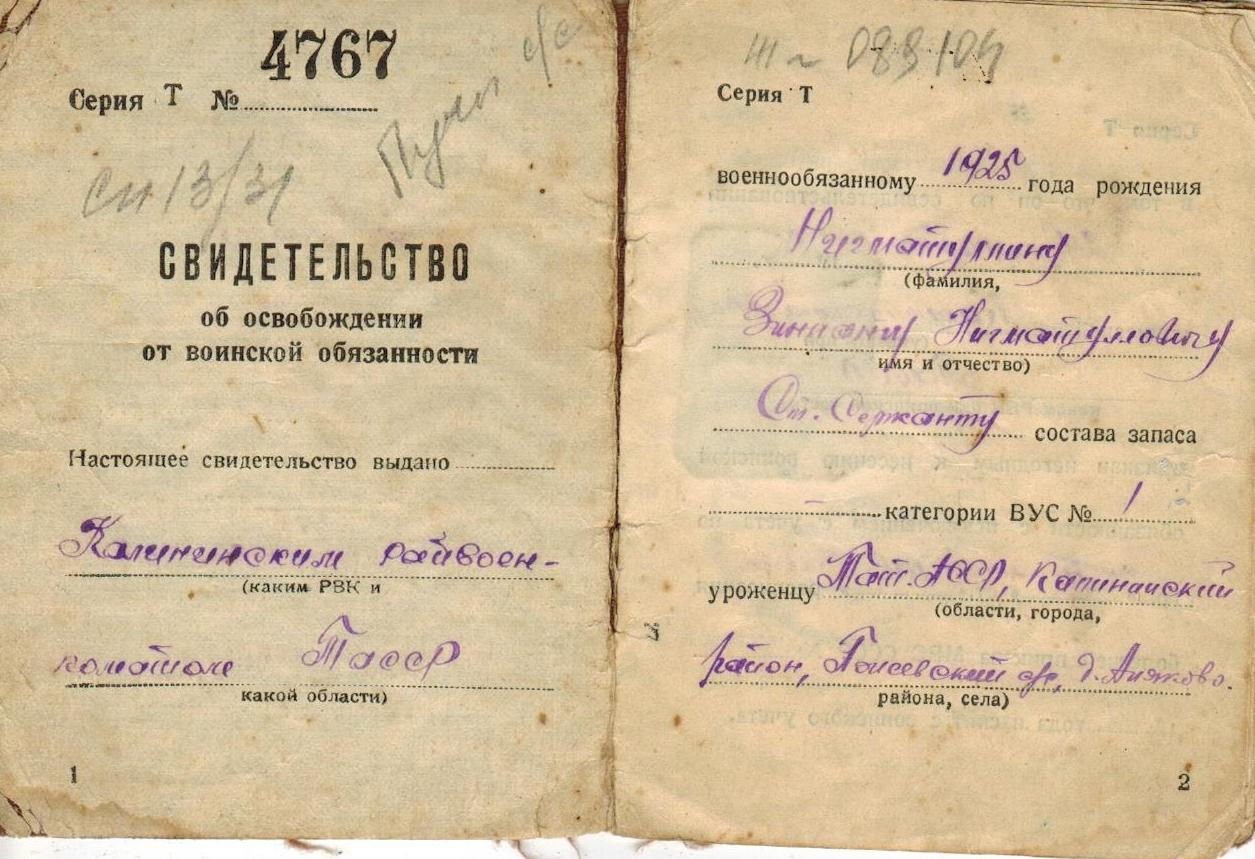 4767
Серия Т №
с/с
си 13/31
СВИДЕТЕЛЬСТВО
об освобождении
от воинской обязанности
Настоящее свидетельство выдано
Калининским райвоен-
(каким РВК и
коматом ТАССР
какой области)
1
Ш ~ 089104
Серия Т
военнообязанному 1925 года рождения
Нигматуллину
(фамилия,
Нигматулловичу
имя и отчество)
Ст. Сержанту состава запаса
- категории ВУС № 1
уроженцу Тат. АССР, Калининский
(области, города,
район, с/с, д.
района, села)
2